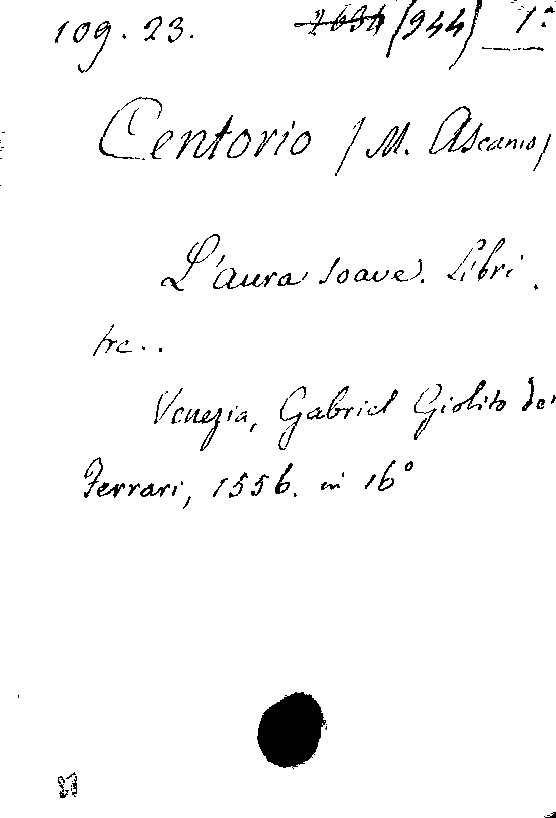 109. 23. (944) 1ª
Centorio (M. Ascanio)
L'aura soave. Libri
tre..
Venezia, Gabriel Giolito de'
Ferrari, 1556. in 16º